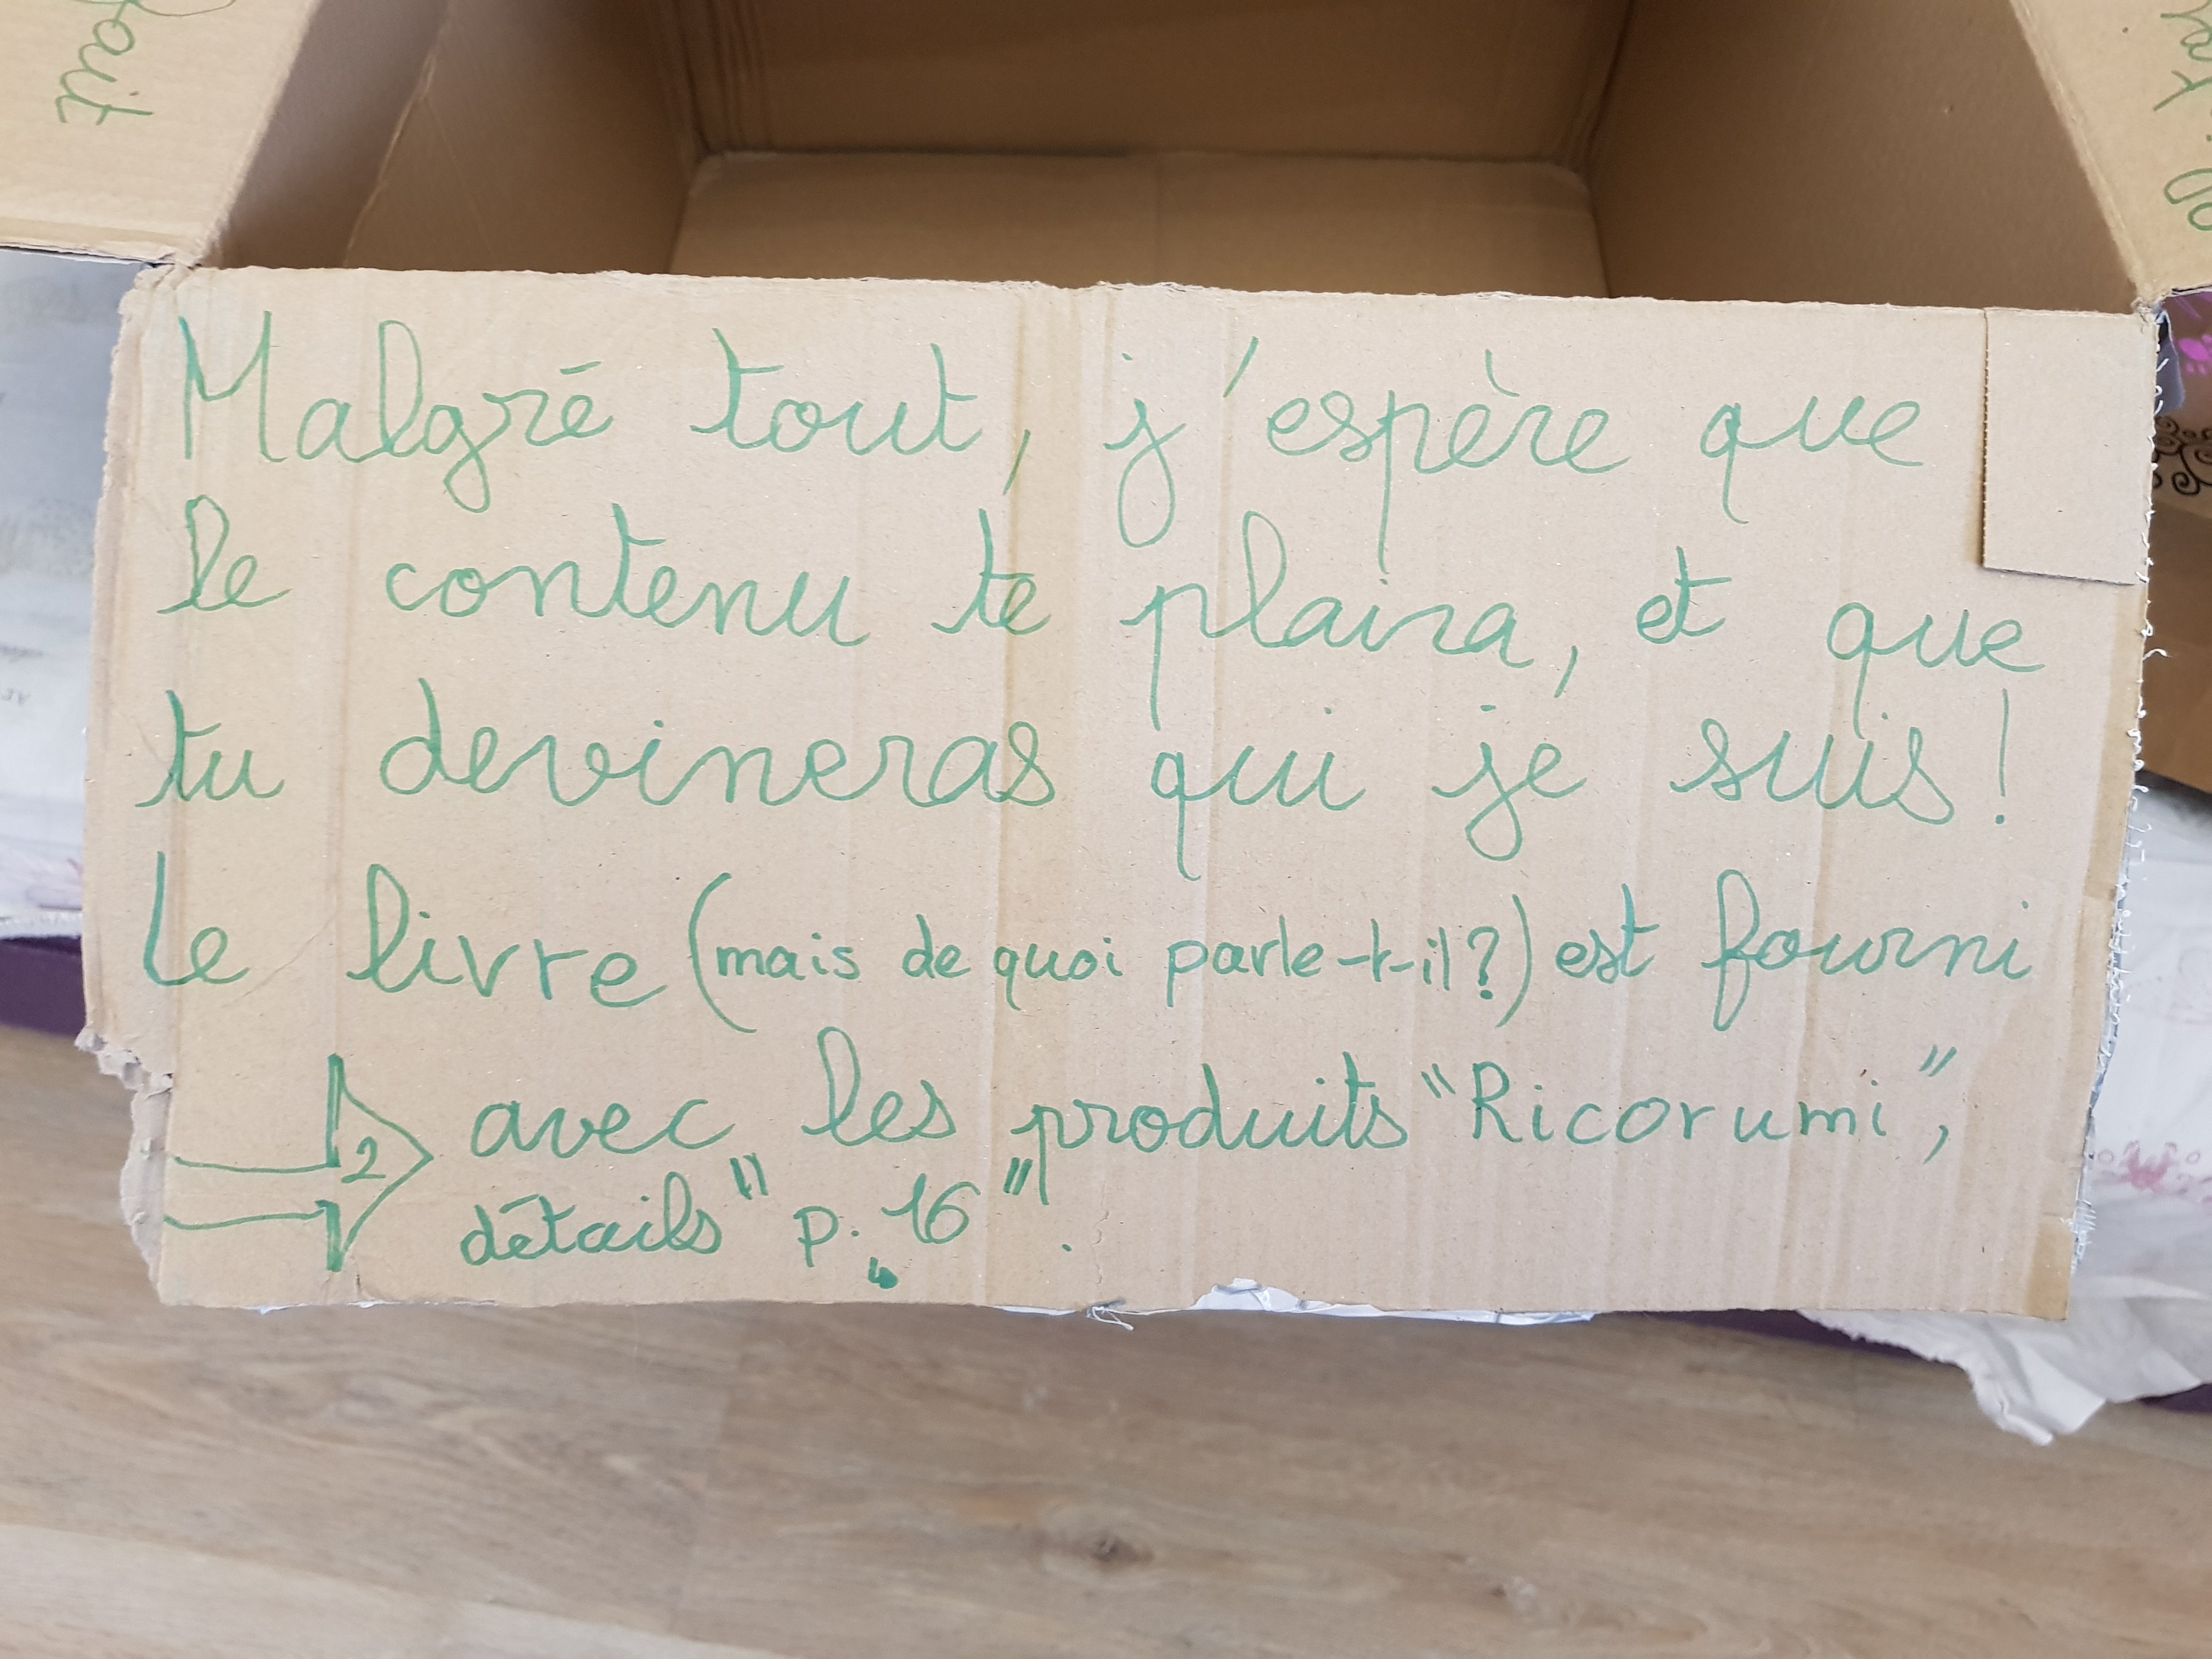 fait
Malgré tout, j'espère que
le contenu te plaira, et que
tu devineras qui je suis !
Le livre (mais de quoi parle-t-il ?) est fourni
2 avec les produits "Ricorumi",
détails "p. 16".